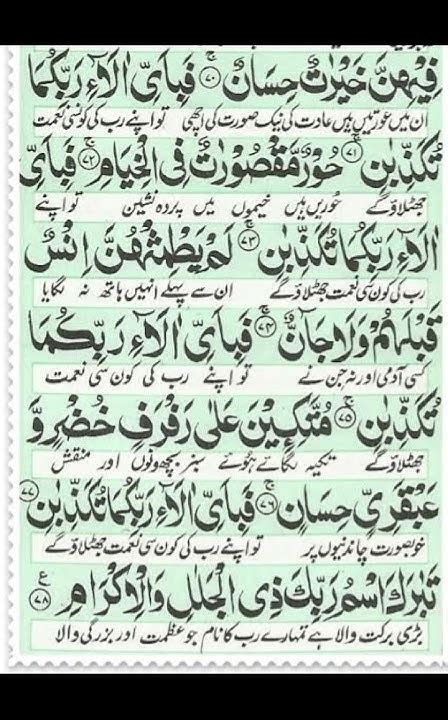 فِيْهِنَّ خَيْرٰتٌ حِسَانٌ ۚ﴿۷۰﴾ فَبِاَيِّ اٰلَآءِ رَبِّكُمَا
ان میں عورتیں ہیں عادت کی نیک صورت کی اچھی تو اپنے رب کی کونسی نعمت
تُكَذِّبٰنِ ۚ﴿۷۱﴾ حُوْرٌ مَّقْصُوْرٰتٌ فِي الْخِيَامِ ۚ﴿۷۲﴾ فَبِاَيِّ
جھٹلاؤ گے حوریں ہیں خیموں میں پردہ نشین تو اپنے
اٰلَآءِ رَبِّكُمَا تُكَذِّبٰنِ ۚ﴿۷۳﴾ لَمْ يَطْمِثْهُنَّ اِنْسٌ
رب کی کون سی نعمت جھٹلاؤ گے ان سے پہلے انہیں ہاتھ نہ لگایا
قَبْلَهُمْ وَلَا جَآنٌّ ۚ﴿۷۴﴾ فَبِاَيِّ اٰلَآءِ رَبِّكُمَا
کسی آدمی اور نہ جن نے تو اپنے رب کی کون سی نعمت
تُكَذِّبٰنِ ۚ﴿۷۵﴾ مُتَّكِـِٕيْنَ عَلٰى رَفْرَفٍ خُضْرٍ وَّ
جھٹلاؤ گے تکیہ لگائے ہوئے سبز بچھونوں اور منقش
عَبْقَرِيٍّ حِسَانٍ ۚ﴿۷۶﴾ فَبِاَيِّ اٰلَآءِ رَبِّكُمَا تُكَذِّبٰنِ ﴿۷۷﴾
خوبصورت چاندنیوں پر تو اپنے رب کی کون سی نعمت جھٹلاؤ گے
تَبٰرَكَ اسْمُ رَبِّكَ ذِي الْجَلٰلِ وَالْاِكْرَامِ ﴿۷۸﴾ ع
بڑی برکت والا ہے تمہارے رب کا نام جو عظمت اور بزرگی والا